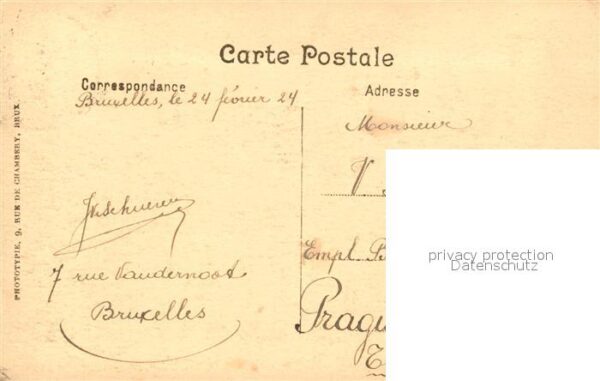 Carte Postale
Correspondance
Adresse
Bruxelles, le 24 février 24
Monsieur
V
7 rue Vandernoot
Bruxelles
Empl
PHOTOTYPIE, 9, RUE DE CHAMBERY, BRUX.
privacy protection
Datenschutz